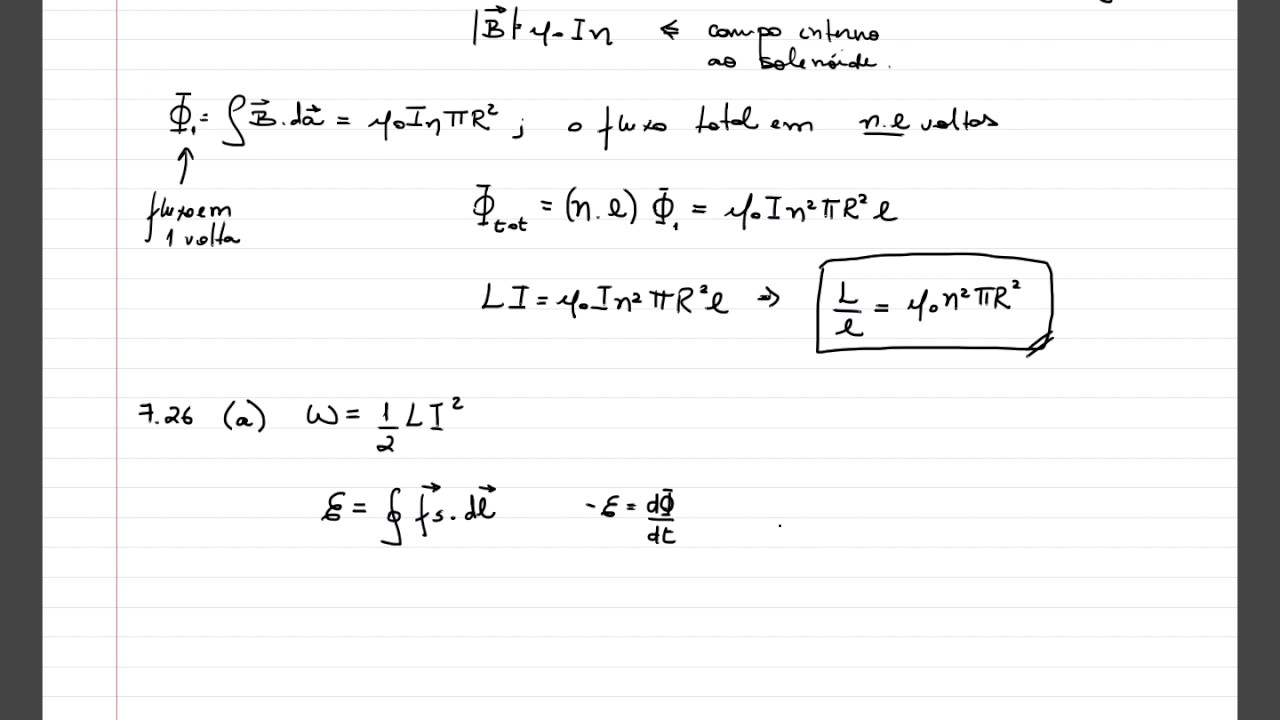 |B⃗| = μ₀In ⇐ campo interno
ao solenóide.
Φ₁ = ∫B⃗.da⃗ = μ₀InπR² ; o fluxo total em n.l voltas
↑
fluxo em
1 volta
Φtot = (n.l) Φ₁ = μ₀In²πR²l
LI = μ₀In²πR²l ⇒ L/l = μ₀n²πR²
7.26 (a) W = 1/2 LI²
ε = ∮f⃗s.dl⃗ -ε = dΦ/dt